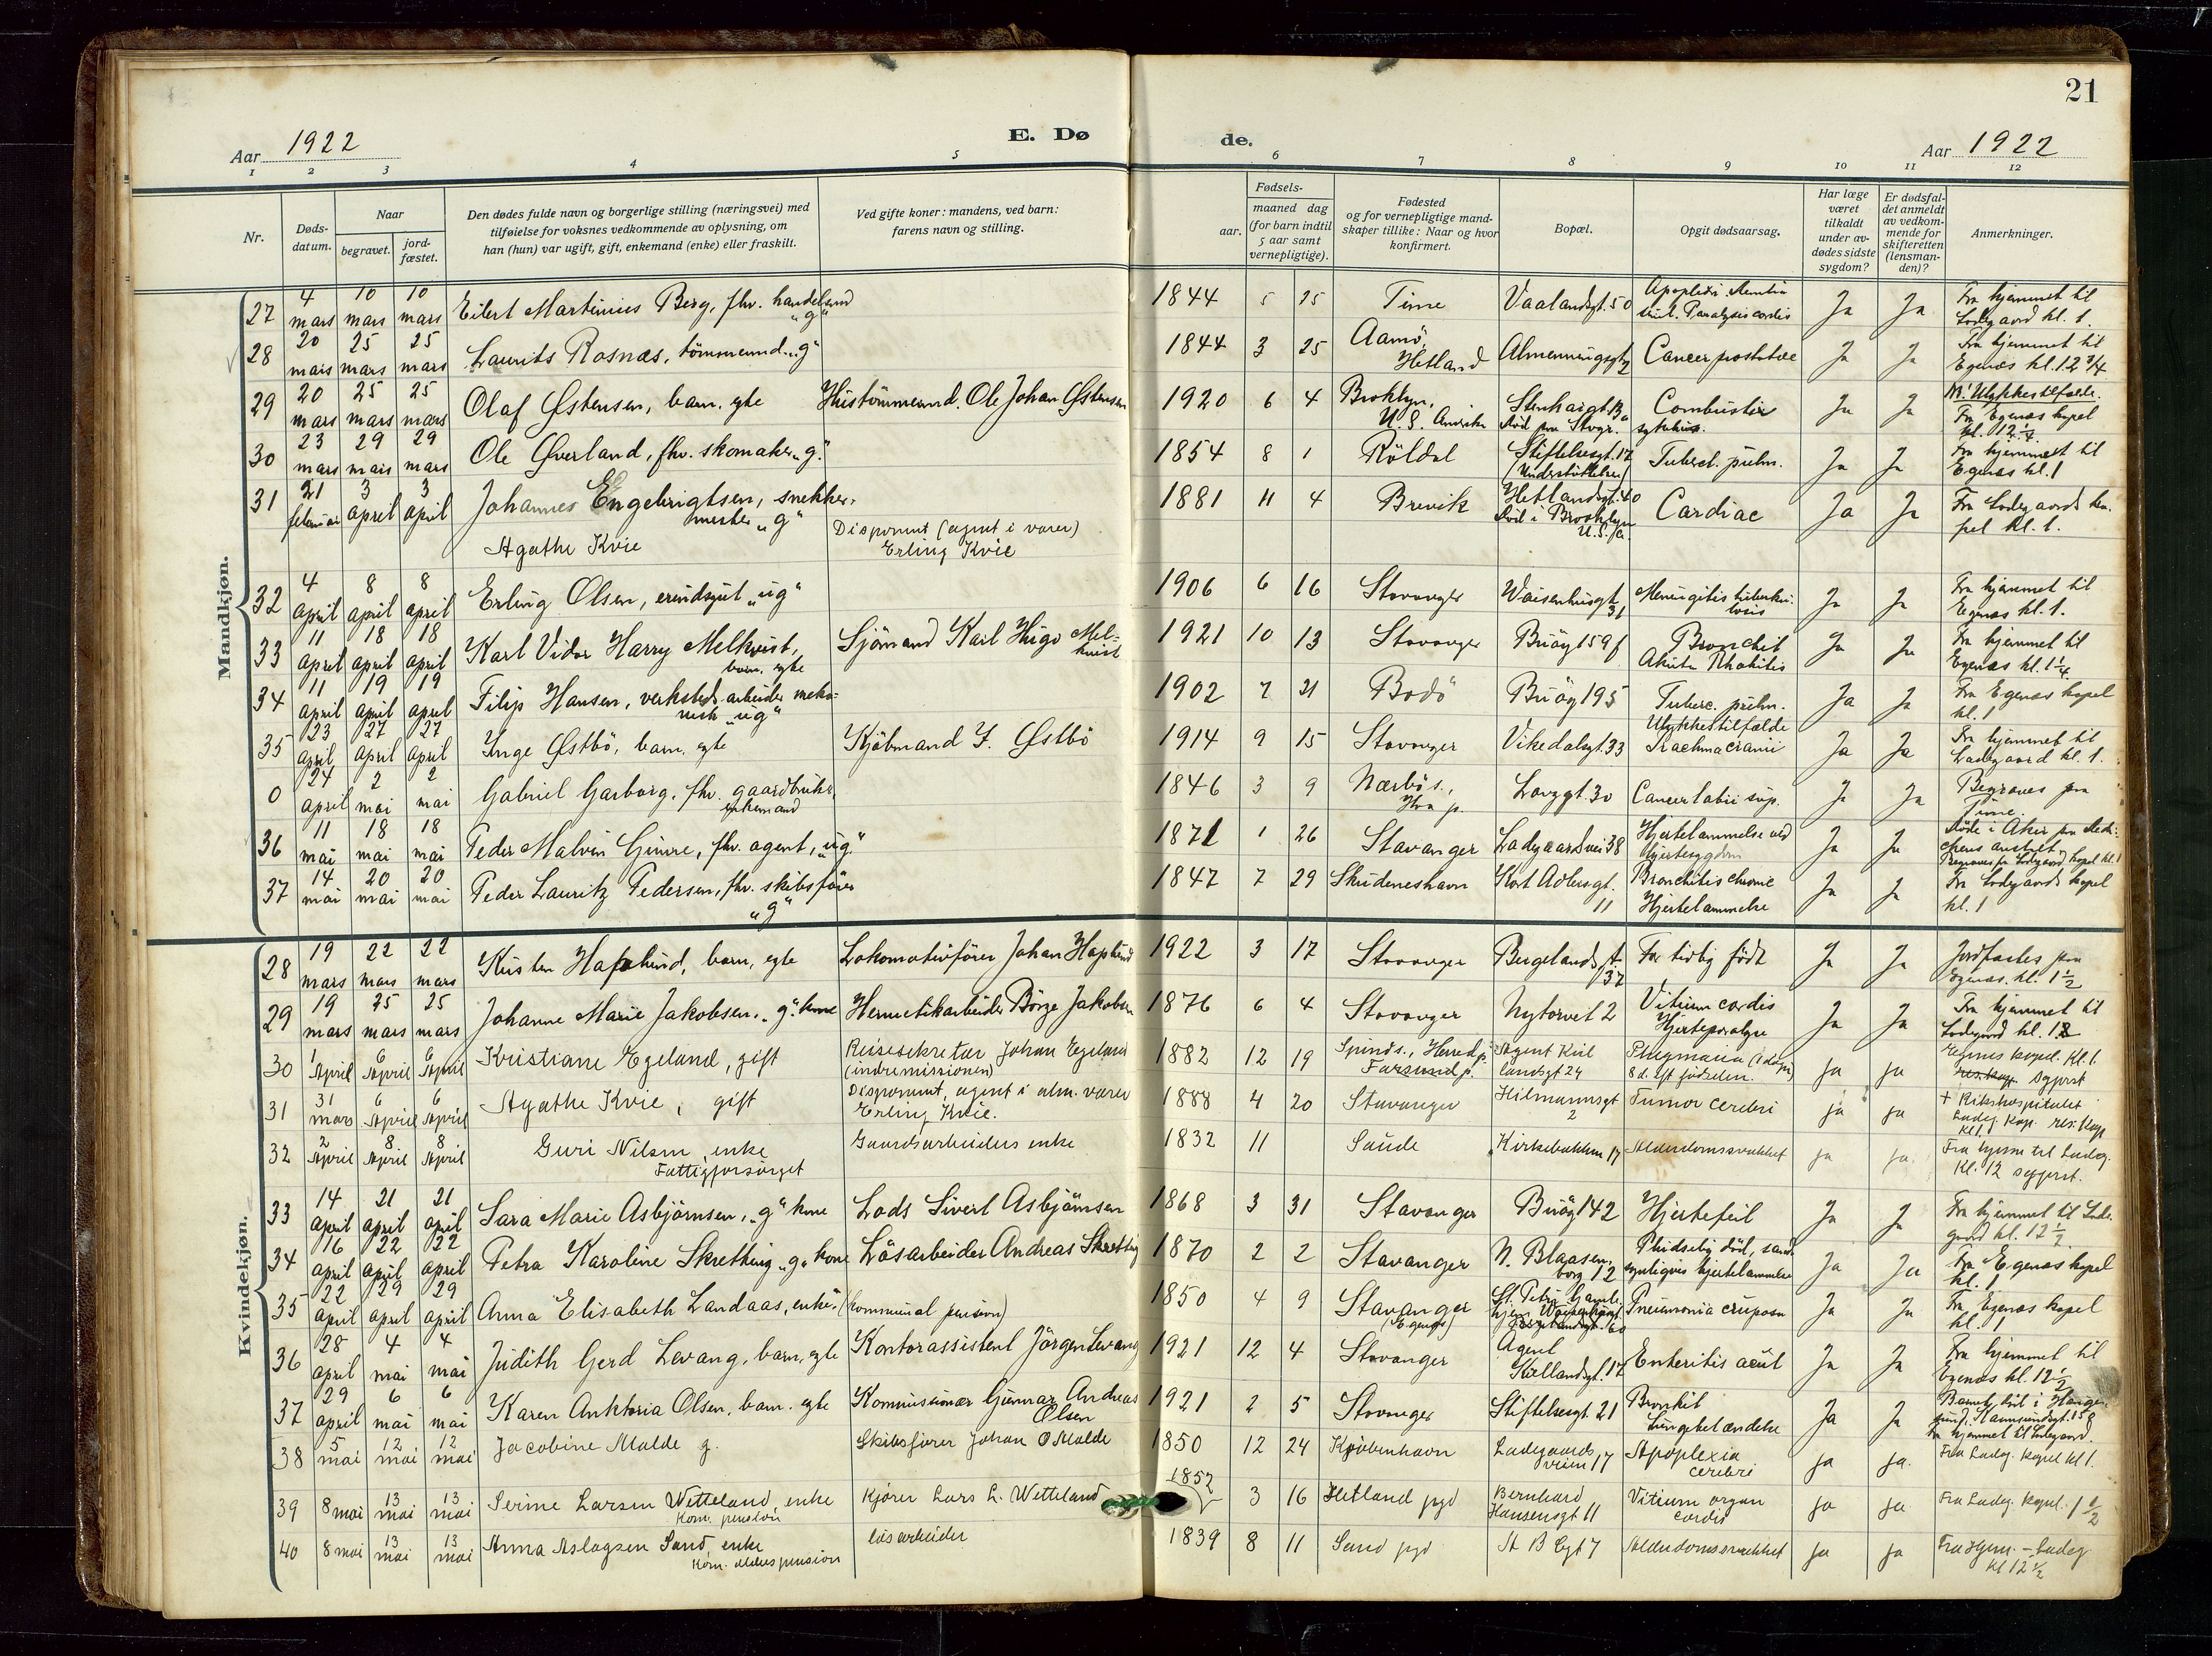 21
Aar 1922
E. Dø
de.
Aar 1922
1 2 3 4 5 6 7 8 9 10 11 12
Nr.
Døds-
datum.
Naar
begravet.
jord-
fæstet.
Den dødes fulde navn og borgerlige stilling (næringsvei) med
tilføielse for voksnes vedkommende av oplysning, om
han (hun) var ugift, gift, enkemand (enke) eller fraskilt.
Ved gifte koner: mandens, ved barn:
farens navn og stilling.
Fødsels-
aar.
maaned dag
(for barn indtil
5 aar samt
vernepligtige).
Fødested
og for vernepligtige mand-
skaper tillike: Naar og hvor
konfirmert.
Bopæl.
Opgit dødsaarsag.
Har læge
været
tilkaldt
under av-
dødes sidste
sygdom?
Er dødsfal-
det anmeldt
av vedkom-
mende for
skifteretten
(lensman-
den)?
Anmerkninger.
Mandkjøn.
27 4 mars 10 mars 10 mars Eilert Martinius Berg, fhv. handelsmd „g“ 1844 5 25 Time Vaalandsgt. 50 Paralysis cordis Ja Ja Fra hjemmet til Ladegaard kl. 1.
28 20 mars 25 mars 25 mars Laurits Rosnæs, tømmermd. „g“ 1844 3 25 Aamø, Hetland Almenningsgt 2 Cancer prostatae Ja Ja Fra hjemmet til Egenæs kl. 12 3/4
29 20 mars 25 mars 25 mars Olaf Østensen, barn, egte Hustømmermd. Ole Johan Østensen 1920 6 4 Broklyn, U. S. Amerika Combustio Ja Ja Ulykkestilfælde. Fra Egenæs kapel kl. 12 1/4.
30 23 mars 29 mars 29 mars Ole Øverland, fhv. skomaker „g.“ 1854 8 1 Røldal Stiftelsesgt. 17 (Understøttelse) Tuberc. pulm. Ja Ja Fra hjemmet til Egenæs kl. 1
31 21 februar 3 april 3 april Johannes Engebrigtsen, snekker- mester „g“ 1881 11 4 Brevik Hetlandsgt. 40 død i Brooklyn U. S. A. Cardiac Ja Ja Fra Ladegaards ka- pel kl. 1.
Agathe Kvie Disponent (agent i varer) Erling Kvie
32 4 april 8 april 8 april Erling Olsen, erindsgut „ug“ 1906 6 16 Stavanger Waisenhusgt 31 Meningitis tuberku- losis Ja Ja Fra hjemmet til Egenæs kl. 1.
33 11 april 18 april 18 april Karl Vidar Harry Melkvist, barn, egte Sjømand Karl Hugo Mel- kvist 1921 10 13 Stavanger Buøy 159 f Bronchit Akuta Rhakitis Ja Ja Fra hjemmet til Egenæs kl. 1 1/4
34 11 april 19 april 19 april Filip Hansen, verksted-arbeider meka- nisk „ug“ 1902 7 21 Bodø Buøy 195 Tuberc. pulm. Ja Ja Fra Egenæs kapel kl. 1
35 23 april 27 april 27 april Inge Østbø, barn, egte Kjøbmand I. Østbø 1914 9 15 Stavanger Vikedalsgt. 33 Ulykkestilfælde Ja Ja Fra hjemmet til Ladegaard kl. 1.
0 24 april 2 mai 2 mai Gabriel Garborg, fhv. gaardbruker, enkemand 1846 3 9 Nærbø s., Haa p. Lavzgt. 30 Cancer labii sup. Ja Ja Begraves paa Time.
36 11 mai 18 mai 18 mai Peder Malvin Gimre, fhv. agent, „ug.“ 1871 1 26 Stavanger Ladegaardsvei 38 Hjertelammelse ved Hjertesygdom Ja Ja Døde i Aker
37 14 mai 20 mai 20 mai Peder Lauritz Pedersen, fhv. skibsfører „g“ 1847 7 29 Skudeneshavn Kort Adlersgt. 11 Bronchitis chronic Hjertelammelse Ja Ja Fra Ladegaards kapel kl. 1
Kvindekjøn.
28 19 mars 22 mars 22 mars Kirsten Hapslund, barn, egte Lokomotivfører Johan Hapslund 1922 3 17 Stavanger Bergelandsgt. 37 For tidlig født Ja Ja Jordfæstes paa Egenæs. kl. 1 1/2
29 19 mars 25 mars 25 mars Johanne Marie Jakobsen, „g.“ kone Hermetikarbeider Børge Jakobsen 1876 6 4 Stavanger Nytorvet 2 Vitium cordis Hjerteparalyse Ja Ja Fra hjemmet til Ladegaard kl. 12
30 1 April 6 April 6 April Kristiane Egeland, gift Reisesekretær Johan Egeland (indremissionen) 1882 12 19 Spinds s., Herred p. Farsund p. Agent Kiil landsgt 24 8 d. eft fødselen. Ja Ja Egenes kapel. Kl. 1. sogprst
31 31 mars 6 April 6 April Agathe Kvie, gift Disponent, agent i alm. varer Erling Kvie. 1888 4 20 Stavanger Hilmannsgt 2 Tumor cerebri ja ja + Rikshospitalet Ladeg. Kap. res. Kap Kl 1
32 2 April 8 April 8 April Guri Nilsen, enke Fattigforsørget Gaardsarbeiders enke 1832 11 Saude Kirkebakken 17 Alderdomssvakhet ja ja. Fra hjemme til Ladeg. Kl. 12 sogprst.
33 14 april 21 april 21 april Sara Marie Asbjørnsen, „g“ kone Lods Sivert Asbjørnsen 1868 3 31 Stavanger Buøy 142 Hjertefeil Ja Ja Fra hjemmet til Lade- gaard kl. 12 1/2
34 16 april 22 april 22 april Petra Karoline Skretting „g“ kone Løsarbeider Andreas Skretting 1870 2 2 Stavanger N. Blaasen- borg 12 Pludselig død, sand- synligvis hjertelammelse Ja Ja Fra Egenæs kapel kl. 1
35 22 april 29 april 29 april Anna Elisabeth Landaas, enke. (kommunal pension) 1850 4 9 Stavanger (Egenæs) St. Petri Gamle hjem Pneumonia cruposa Ja Ja Fra Egenæs kapel kl. 1
36 28 april 4 mai 4 mai Judith Gerd Levang, barn, egte Kontorassistent Jørgen Levang 1921 12 4 Stavanger Agent Kiellandsgt. 17 Enteritis acut Ja Ja Fra hjemmet til Egenæs kl. 12 1/2
37 29 april 6 mai 6 mai Karen Anktoria Olsen, barn, egte Kommissionær Gunnar Andreas Olsen 1921 2 5 Stavanger Stiftelsesgt. 21 Bronkit Lungebetændelse Ja Ja Fra hjemmet til Ladegaard.
38 5 mai 12 mai 12 mai Jacobine Malde g. Skibsfører Johan O Malde 1850 12 24 Kjøbenhavn Ladegaards veien 17 Apoplexia cerebri ja ja. Fra Ladeg. Kapel kl 1.
39 8 mai 13 mai 13 mai Serine Larsen Wetteland, enke Kom. pension Kjører Lars L. Wetteland 1852 3 16 Hetland pgd Bernhard Hansensgt 11 Vitium organ cordis ja ja Fra Ladeg. Kapel. 1 1/2
40 8 mai 13 mai 13 mai Anna Aslagsen Sand, enke Kom. alderspension løsarbeider 1839 8 11 Sand pgd St B Cgt 7 Alderdomssvakhet ja ja Fra Hjem. - Ladeg. kl 12 1/2